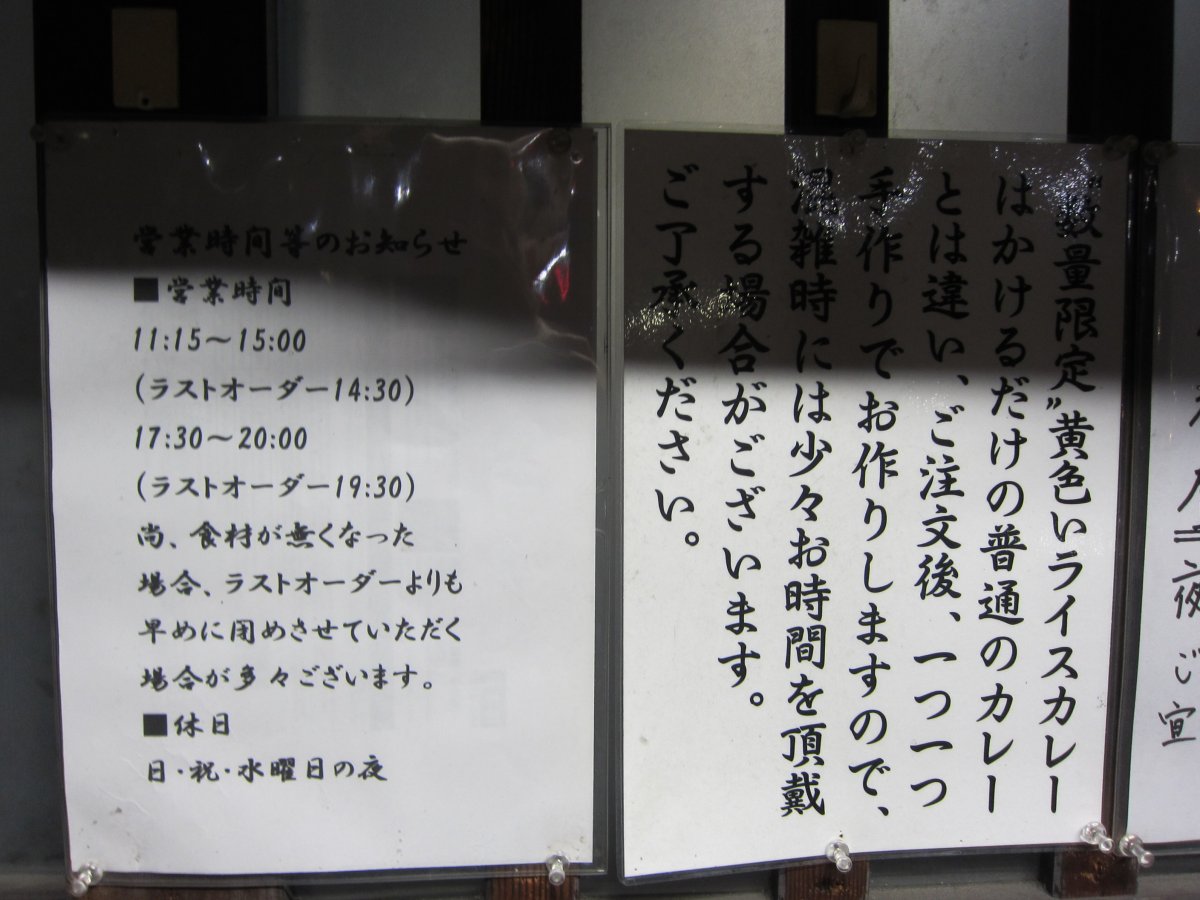 営業時間等のお知らせ
■営業時間
11:15～15:00
(ラストオーダー14:30)
17:30～20:00
(ラストオーダー19:30)
尚、食材が無くなった
場合、ラストオーダーよりも
早めに閉めさせていただく
場合が多々ございます。
■休日
日・祝・水曜日の夜
〝数量限定〟黄色いライスカレー
はかけるだけの普通のカレー
とは違い、ご注文後、一つ一つ
手作りでお作りしますので、
混雑時には少々お時間を頂戴
する場合がございます。
ご了承ください。